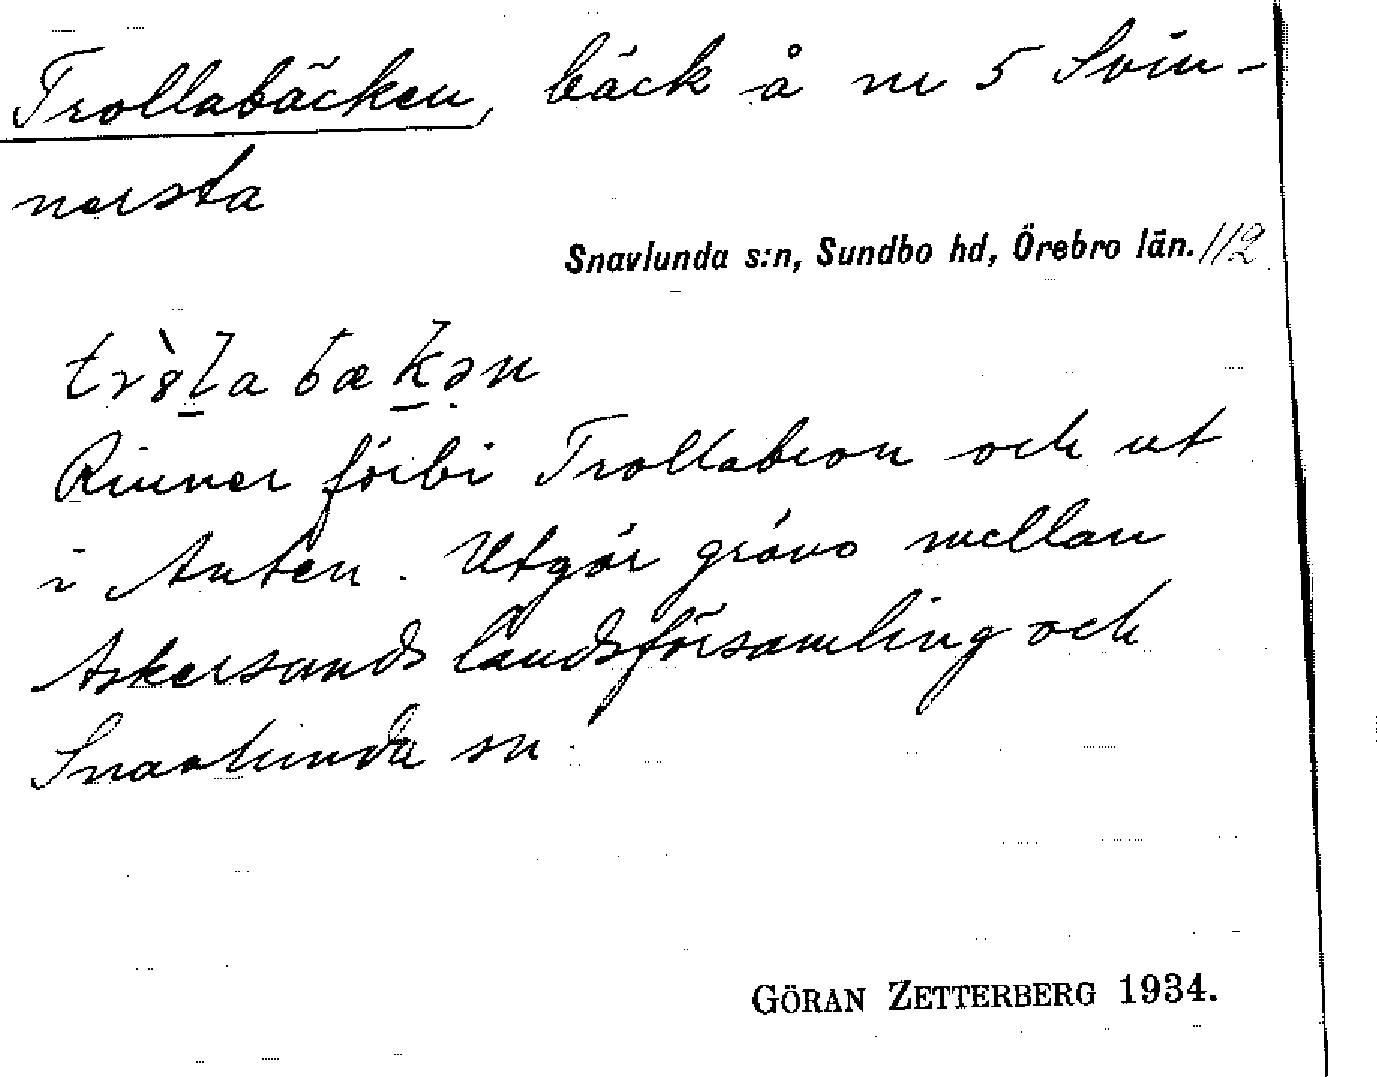 Trollabäcken, bäck å nr 5 Svin-
nersta
Snavlunda s:n, Sundbo hd, Örebro län. 112
trȍl̲abæk̲ən
Rinner förbi Trollabron och ut
i Anten. Utgör gräns mellan
Askersunds landsförsamling och
Snavlunda sn.
GÖRAN ZETTERBERG 1934.